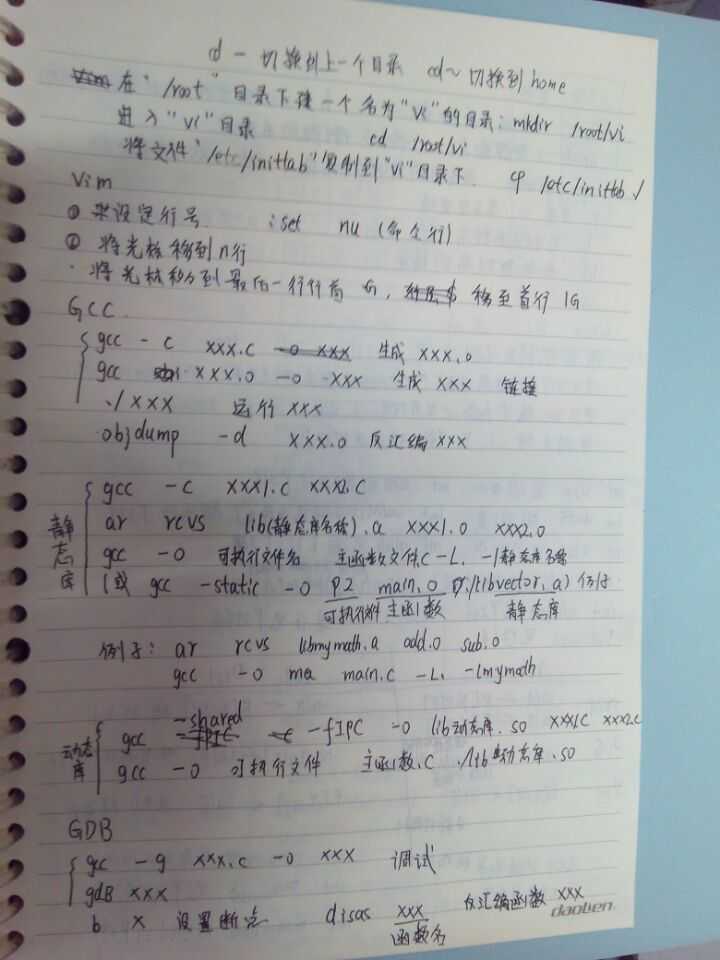 cd - 切换到上一个目录 cd~ 切换到home
在"/root"目录下建一个名为"vi"的目录: mkdir /root/vi
进入"vi"目录 cd /root/vi
将文件"/etc/inittab"复制到"vi"目录下. cp /etc/inittab ./
Vim
① 设定行号 :set nu (命令行)
② 将光标移到n行
· 将光标移到最后一行行首 G, 移至首行 1G
GCC
gcc -c xxx.c 生成 xxx.o
gcc xxx.o -o xxx 生成 xxx 链接
./xxx 运行 xxx
objdump -d xxx.o 反汇编 xxx
静态库
gcc -c xxx1.c xxx2.c
ar rcvs lib(静态库名称).a xxx1.o xxx2.o
gcc -o 可执行文件名 主函数文件.c -L. -l静态库名称
(或 gcc -static -o p2 main.o ./libvector.a) 例子
可执行文件 主函数 静态库
例子: ar rcvs libmymath.a add.o sub.o
gcc -o ma main.c -L. -lmymath
动态库
gcc -shared -fIPC -o lib动态库.so xxx1.c xxx2.c
gcc -o 可执行文件 主函数.c ./lib动态库.so
GDB
gc -g xxx.c -o xxx 调试
gdB xxx
b x 设置断点 disas xxx 反汇编函数 xxx
函数名
daoben